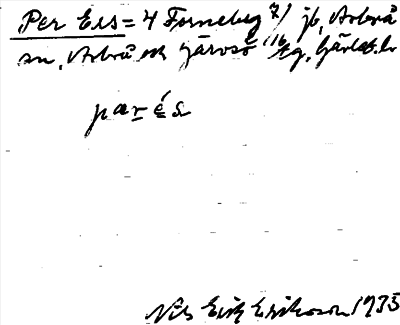 Per Ers = 4 Forneby 7/ jb, Arbrå
sn, Arbrå och Järvsö tg, Gävleb. l.
parés
Nils Erik Eriksson 1935